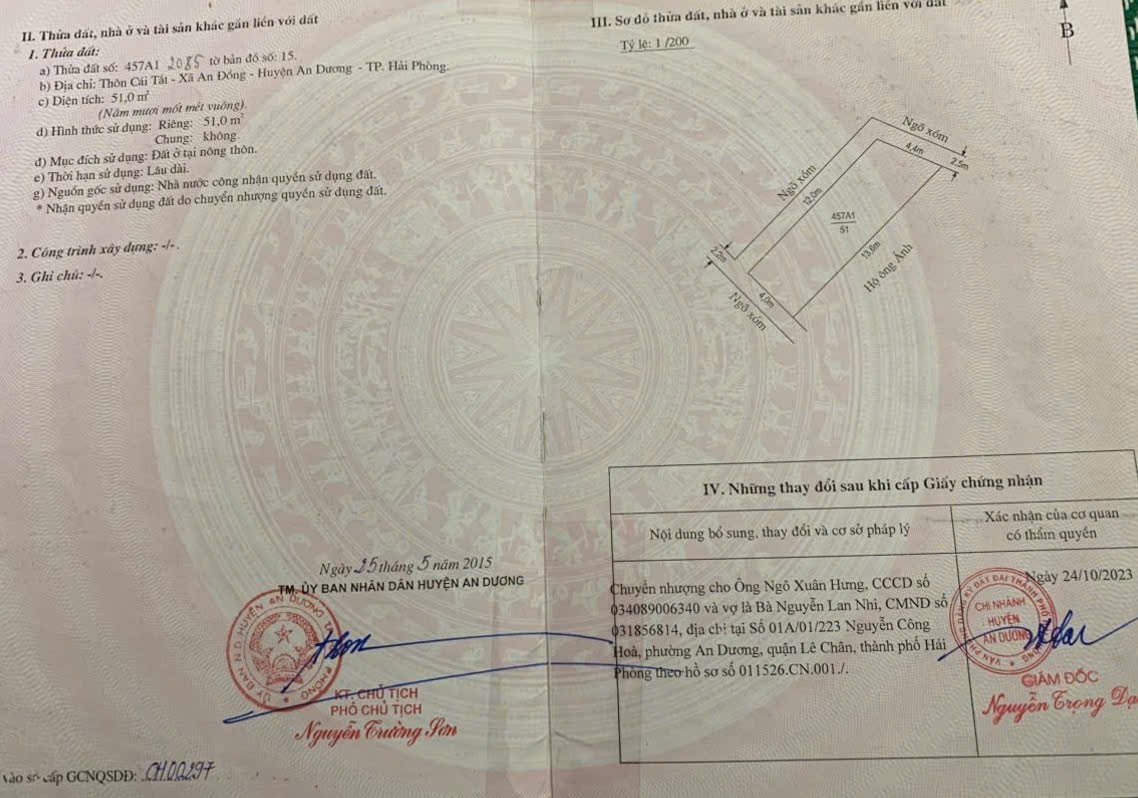 II. Thửa đất, nhà ở và tài sản khác gắn liền với đất
1. Thửa đất:
a) Thửa đất số: 457A1 2085 tờ bản đồ số: 15.
b) Địa chỉ: Thôn Cái Tắt - Xã An Đồng - Huyện An Dương - TP. Hải Phòng.
c) Diện tích: 51,0 m²
(Năm mươi mốt mét vuông).
d) Hình thức sử dụng: Riêng: 51,0 m²
Chung: không.
đ) Mục đích sử dụng: Đất ở tại nông thôn.
e) Thời hạn sử dụng: Lâu dài.
g) Nguồn gốc sử dụng: Nhà nước công nhận quyền sử dụng đất.
* Nhận quyền sử dụng đất do chuyển nhượng quyền sử dụng đất.
2. Công trình xây dựng: -/- .
3. Ghi chú: -/-.
Ngày 25 tháng 5 năm 2015
TM. ỦY BAN NHÂN DÂN HUYỆN AN DƯƠNG
ỦY BAN N.D HUYỆN AN DƯƠNG
KT. CHỦ TỊCH
PHÓ CHỦ TỊCH
Nguyễn Trường Sơn
vào sổ cấp GCNQSDĐ: CH.00297
III. Sơ đồ thửa đất, nhà ở và tài sản khác gắn liền với đất
Tỷ lệ: 1 /200
B
Ngõ xóm
4,4m
2,5m
Ngõ xóm
12,0m
457A1
51
13,6m
Hộ ông Ảnh
2,2m
4,0m
Ngõ xóm
IV. Những thay đổi sau khi cấp Giấy chứng nhận
Nội dung bổ sung, thay đổi và cơ sở pháp lý
Xác nhận của cơ quan
có thẩm quyền
Chuyển nhượng cho Ông Ngô Xuân Hưng, CCCD số
034089006340 và vợ là Bà Nguyễn Lan Nhi, CMND số
031856814, địa chỉ tại Số 01A/01/223 Nguyễn Công
Hoà, phường An Dương, quận Lê Chân, thành phố Hải
Phòng theo hồ sơ số 011526.CN.001./.
Ngày 24/10/2023
CHI NHÁNH
HUYỆN
AN DƯƠNG
GIÁM ĐỐC
Nguyễn Trọng